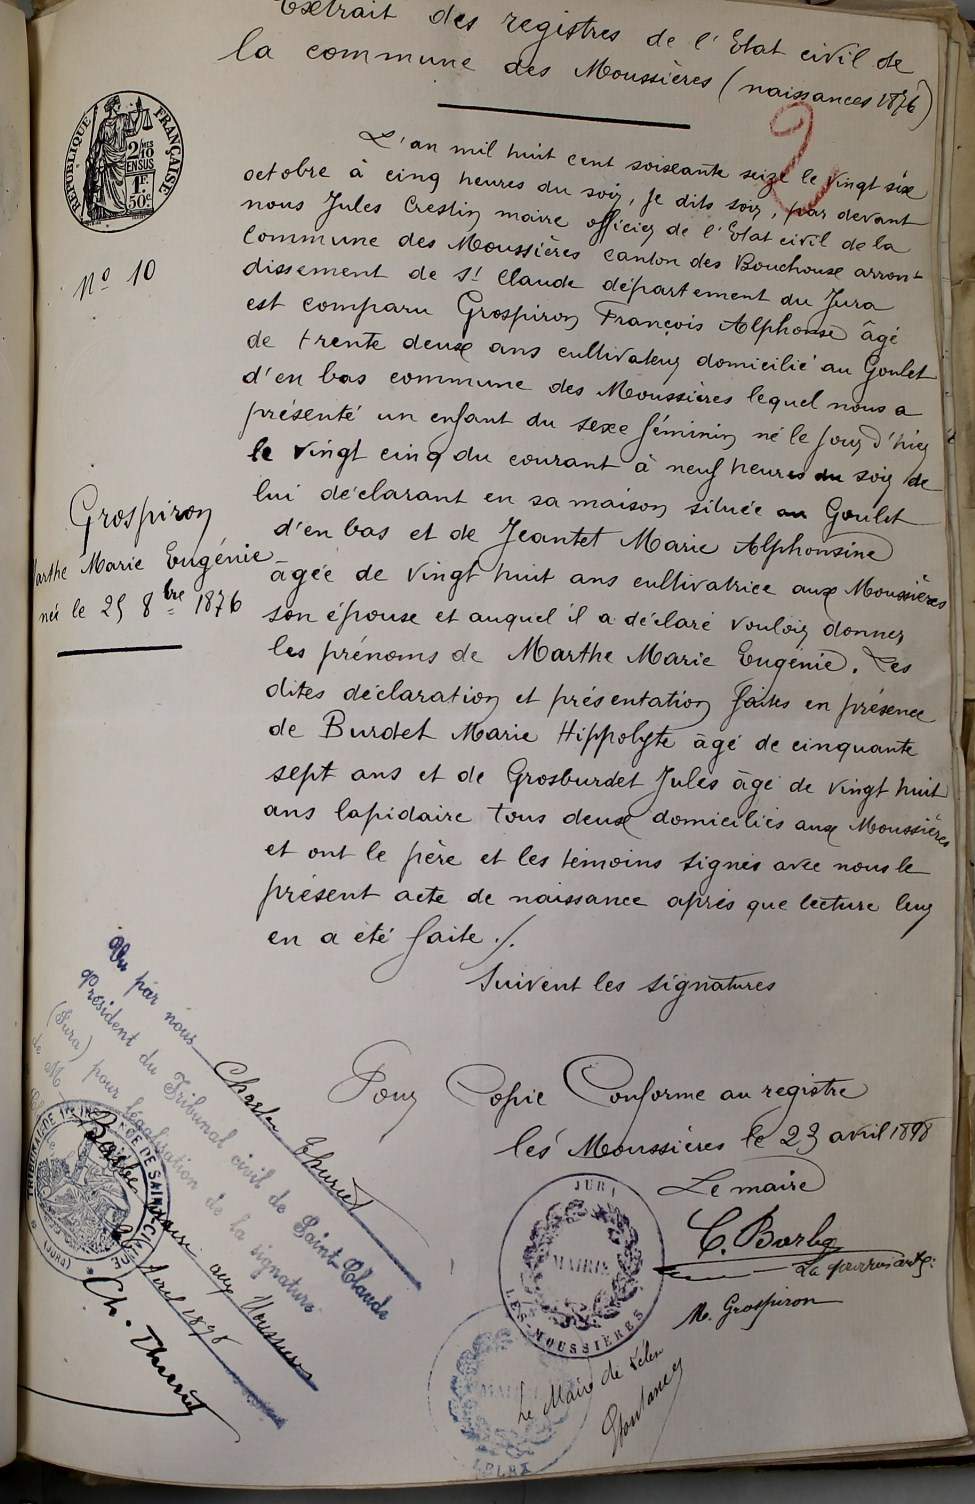 Extrait des registres de l'Etat civil de
la commune des Moussières (naissances 1876)
2
RÉPUBLIQUE FRANÇAISE
2/10
EN SUS
1F.
50c
L'an mil huit cent soixante seize le vingt six
octobre à cinq heures du soir, je dits soir, par devant
nous Jules Crestin maire officier de l'Etat civil de la
commune des Moussières canton des Bouchoux arron-
dissement de St Claude département du Jura
est comparu Grospiron François Alphonse âgé
de trente deux ans cultivateur domicilié au Goulet
d'en bas commune des Moussières lequel nous a
présenté un enfant du sexe féminin né le jour d'hier
le vingt cinq du courant à neuf heures du soir de
lui déclarant en sa maison située au Goulet
d'en bas et de Jeantet Marie Alphonsine
âgée de vingt huit ans cultivatrice aux Moussières
son épouse et auquel il a déclaré vouloir donner
les prénoms de Marthe Marie Eugénie. Les
dites déclaration et présentation faites en présence
de Burdet Marie Hippolyte âgé de cinquante
sept ans et de Grosburdet Jules âgé de vingt huit
ans lapidaire tous deux domiciliés aux Moussières
et ont le père et les témoins signés avec nous le
présent acte de naissance après que lecture leur
en a été faite ./.
Suivent les signatures
No 10
Grospiron
Marthe Marie Eugénie
née le 25 8bre 1876
Pour Copie Conforme au registre
lés Moussières le 23 avril 1898
Le maire
C. Barbe
M. Grospiron
JURA
MAIRIE
LES-MOUSSIÈRES
Le Maire de Lélex
MAIRIE
LELEX
Vu par nous Charles Thurriet
Président du Tribunal civil de Saint-Claude
(Jura) pour légalisation de la signature
de M Barbe maire aux Moussières
Avril 1898
Ch. Thurriet
TRIBUNAL DE 1RE INSTANCE DE SAINT-CLAUDE
(JURA)